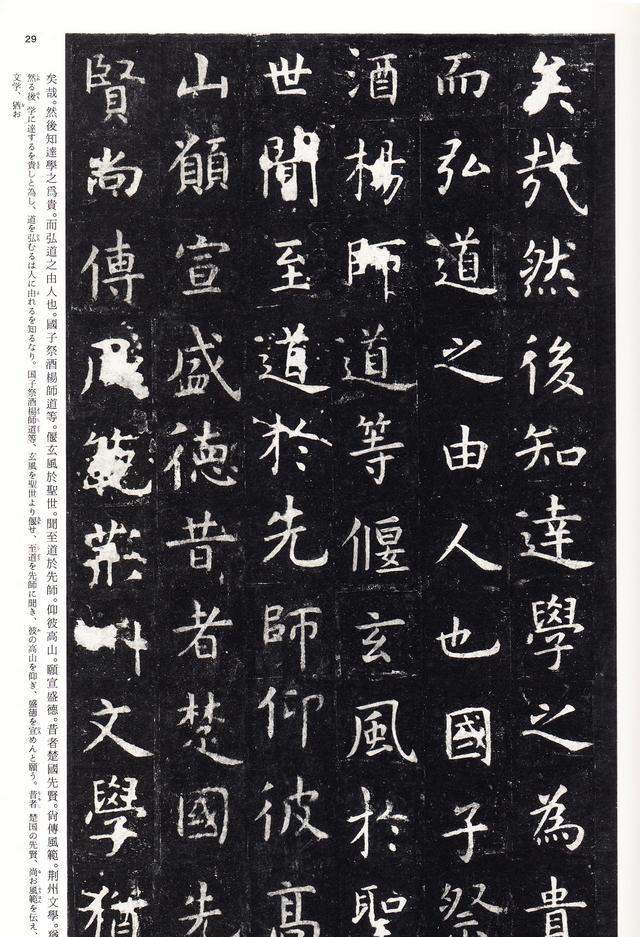 矣哉然後知達學之為貴
而弘道之由人也國子祭
酒楊師道等偃玄風於聖
世聞至道於先師仰彼高
山願宣盛德昔者楚國先
賢尚傳風範荊州文學猶
矣哉。然後知達學之爲貴。而弘道之由人也。國子祭酒楊師道等。偃玄風於聖世。聞至道於先師。仰彼高山。願宣盛德。昔者楚國先賢。尙傳風範。荊州文學。猶
然る後 学に達するを貴しと為し、道を弘むるは人に由れるを知るなり。国子祭酒楊師道等、玄風を聖世より偃せ、至道を先師に聞き、彼の高山を仰ぎ、盛徳を宣めんと願う。昔者 楚国の先賢、尚お風範を伝え、
文学、猶お
29